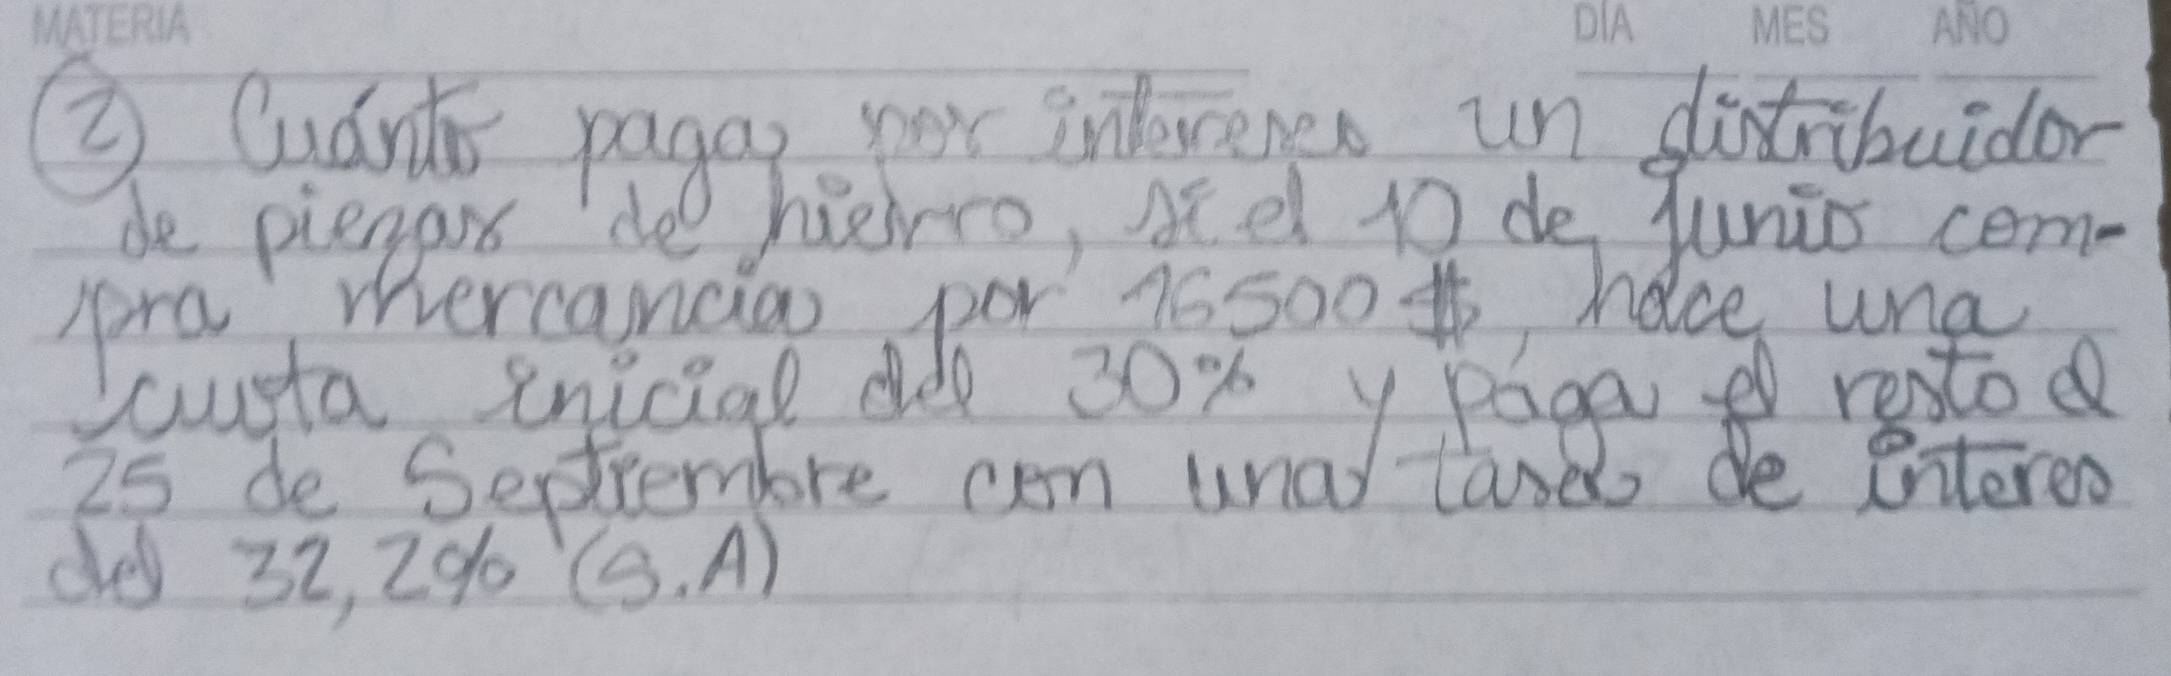 MATERIA DÍA MES AÑO
② Cuánto paga por intereses un distribuidor
de piezas de hierro, si el 10 de Junio com-
pra mercancia por 16500 $, hace una
cuota inicial del 30% y paga el resto el
25 de Septiembre con una tasa de interes
del 32,2% (S.A)